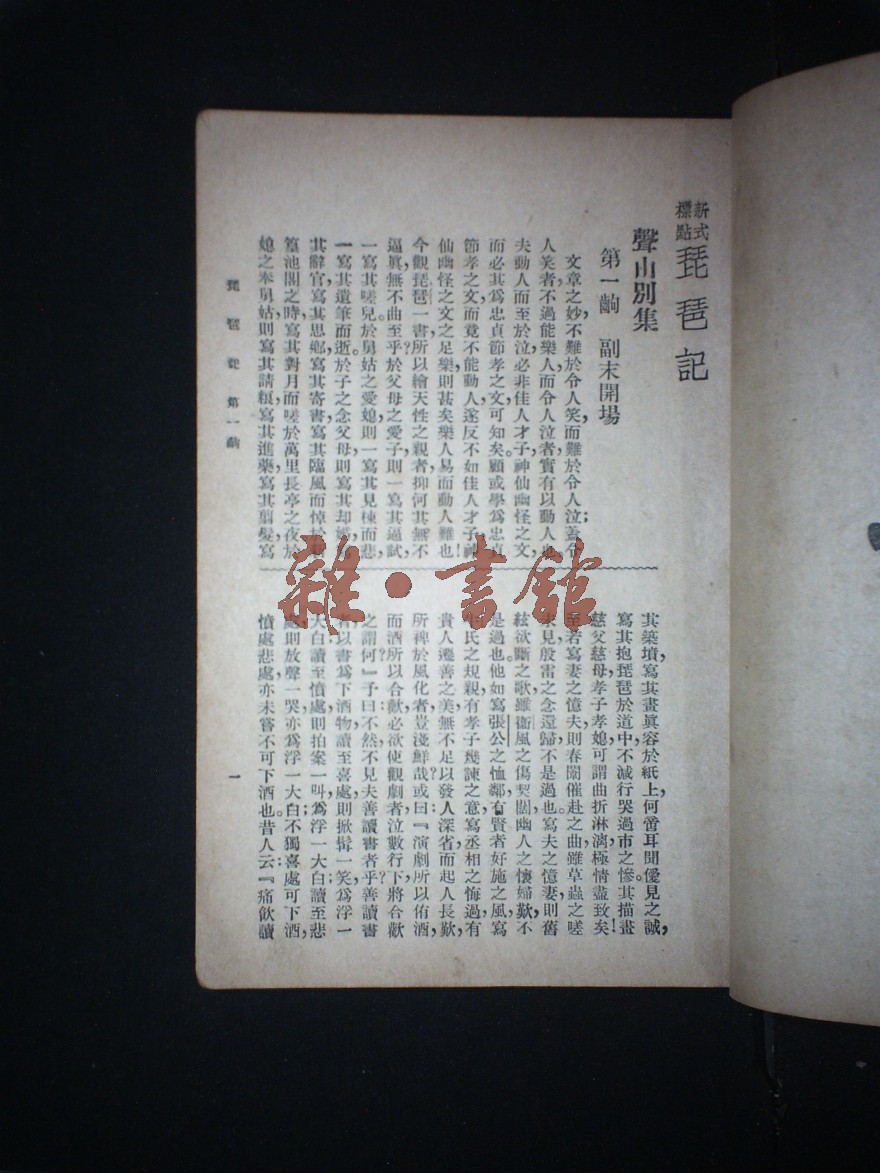 新式標點
琵琶記
聲山別集
第一齣　副末開場
文章之妙，不難於令人笑，而難於令人泣；蓋令
人笑者，不過能樂人，而令人泣者，實有以動人也。
夫動人而至於泣，必非佳人才子神仙幽怪之文，
而必其為忠貞節孝之文可知矣。顧或學為忠貞
節孝之文，而竟不能動人，遂反不如佳人才子神
仙幽怪之文之足樂，則甚矣樂人易而動人難也！
今觀琵琶一書，所以繪天性之親者，抑何其無不
逼真，無不曲至乎？於父母之愛子，則一寫其逼試，
一寫其嗟兒。於舅姑之愛媳，則一寫其見棟而悲，
一寫其遺筆而逝。於子之念父母，則寫其却婚，
其辭官，寫其思鄉，寫其寄書，寫其臨風而悼於
篁池閣之時，寫其對月而嗟於萬里長亭之夜，於
媳之奉舅姑，則寫其請糧，寫其進藥，寫其剪髮，寫
其築墳，寫其畫真容於紙上，何啻耳聞優見之誠，
寫其抱琵琶於道中，不減行哭過市之慘。其描畫
慈父慈母孝子孝媳，可謂曲折淋漓，極情盡致矣！
至若寫妻之憶夫，則春闈催赴之曲，雖草蟲之嗟
未見，殷雷之念還歸，不是過也。寫夫之憶妻，則舊
絃欲斷之歌，雖衞風之傷契闊，幽人之懷婦歎，不
是過也。他如寫張公之恤鄰，有賢者好施之風，寫
牛氏之規親，有孝子幾諫之意，寫丞相之悔過，有
貴人遷善之美，無不足以發人深省，而起人長歎，
所裨於風化者，豈淺鮮哉？或曰：『演劇所以侑酒，
而酒所以合歡，必欲使觀劇者泣數行下，將合歡
之謂何？』予曰：不然，不見夫善讀書者乎？善讀書
者，以書為下酒物，讀至喜處，則掀髯一笑，為浮一
大白；讀至憤處，則拍案一叫，為浮一大白；讀至悲
處，則放聲一哭，亦為浮一大白；不獨喜處可下酒，
憤處悲處，亦未嘗不可下酒也。昔人云：『痛飲讀
琵琶記　第一齣
一
雜·書館